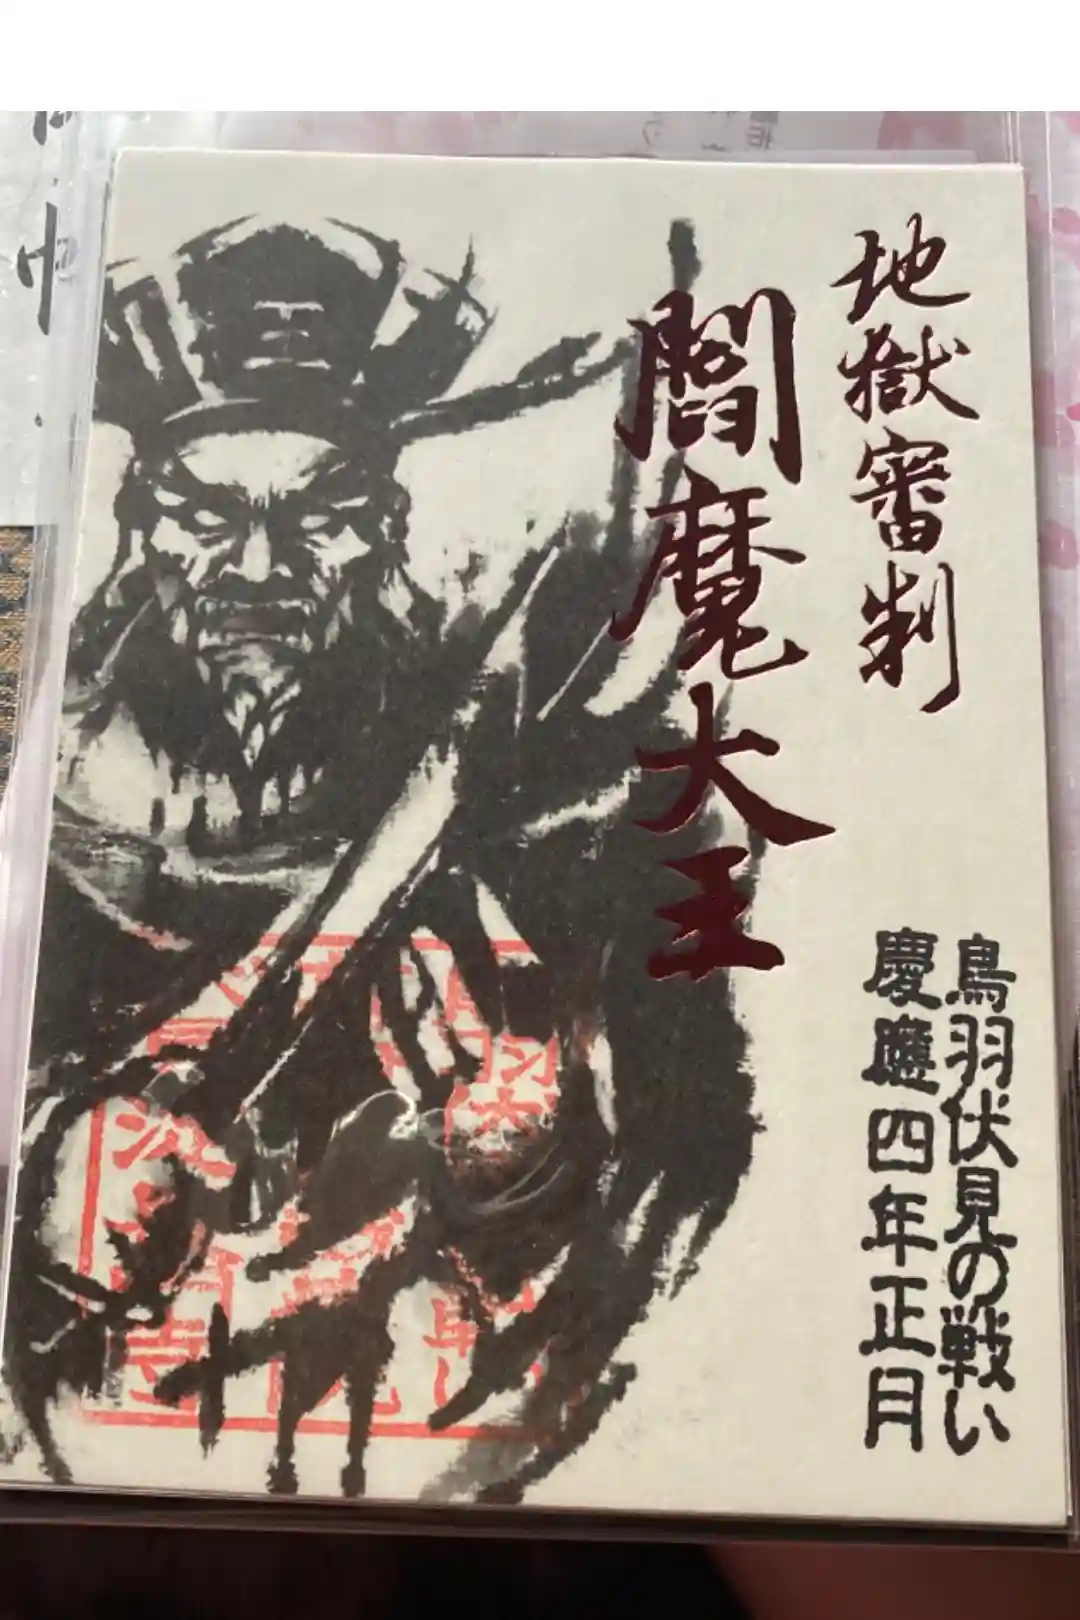 地獄審判
閻魔大王
鳥羽伏見の戦い
慶應四年正月
王